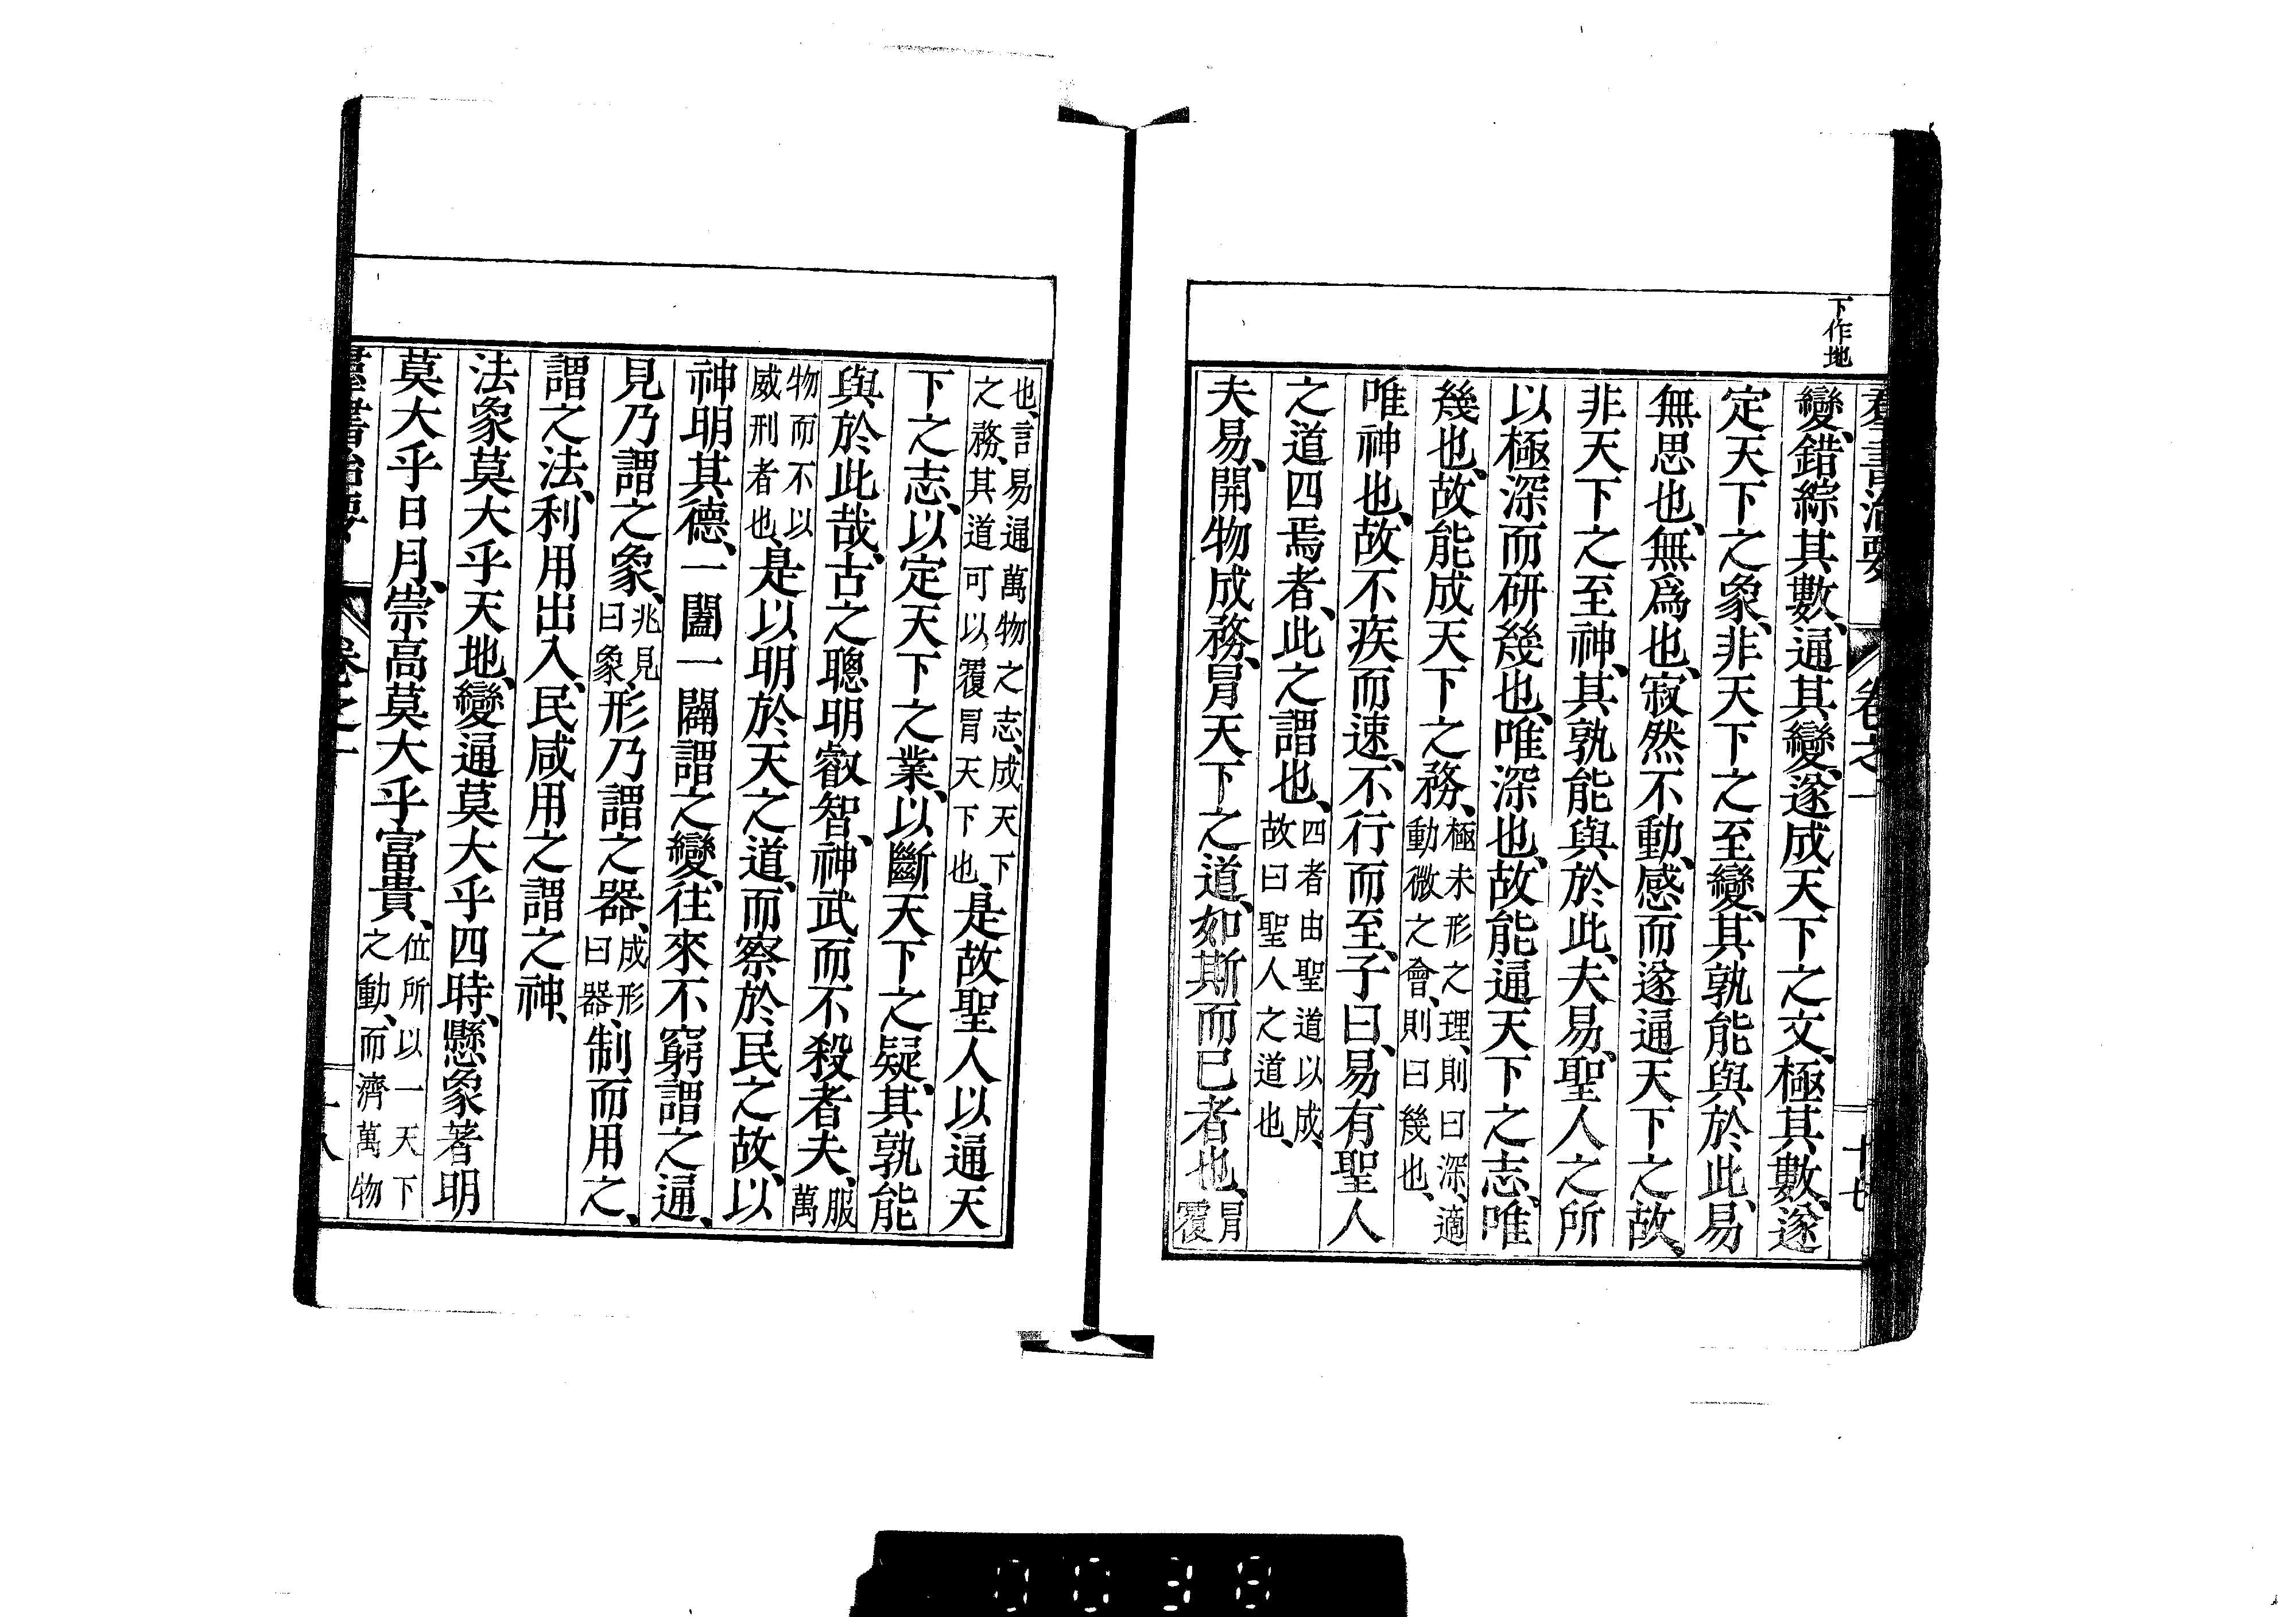 下作地
羣書治要 卷之一 十七
變、錯綜其數、通其變、遂成天下之文、極其數、遂
定天下之象、非天下之至變、其孰能與於此、易
無思也、無爲也、寂然不動、感而遂通天下之故、
非天下之至神、其孰能與於此、夫易、聖人之所
以極深而研幾也、唯深也、故能通天下之志、唯
幾也、故能成天下之務、極未形之理、則曰深、適動微之會、則曰幾也、
唯神也、故不疾而速、不行而至、子曰、易有聖人
之道四焉者、此之謂也、四者由聖道以成、故曰聖人之道也、
夫易、開物成務、冒天下之道、如斯而已者也、冒覆
也、言易通萬物之志、成天下之務、其道可以覆冒天下也、是故聖人以通天
下之志、以定天下之業、以斷天下之疑、其孰能
與於此哉、古之聰明叡智、神武而不殺者夫、服萬
物而不以威刑者也、是以明於天之道、而察於民之故、以
神明其德、一闔一闢謂之變、往來不窮謂之通、
見乃謂之象、兆見曰象、形乃謂之器、成形曰器、制而用之、
謂之法、利用出入、民咸用之、謂之神、
法象莫大乎天地、變通莫大乎四時、懸象著明
莫大乎日月、崇高莫大乎富貴、位所以一天下之動、而濟萬物
羣書治要 卷之一 十八
0038